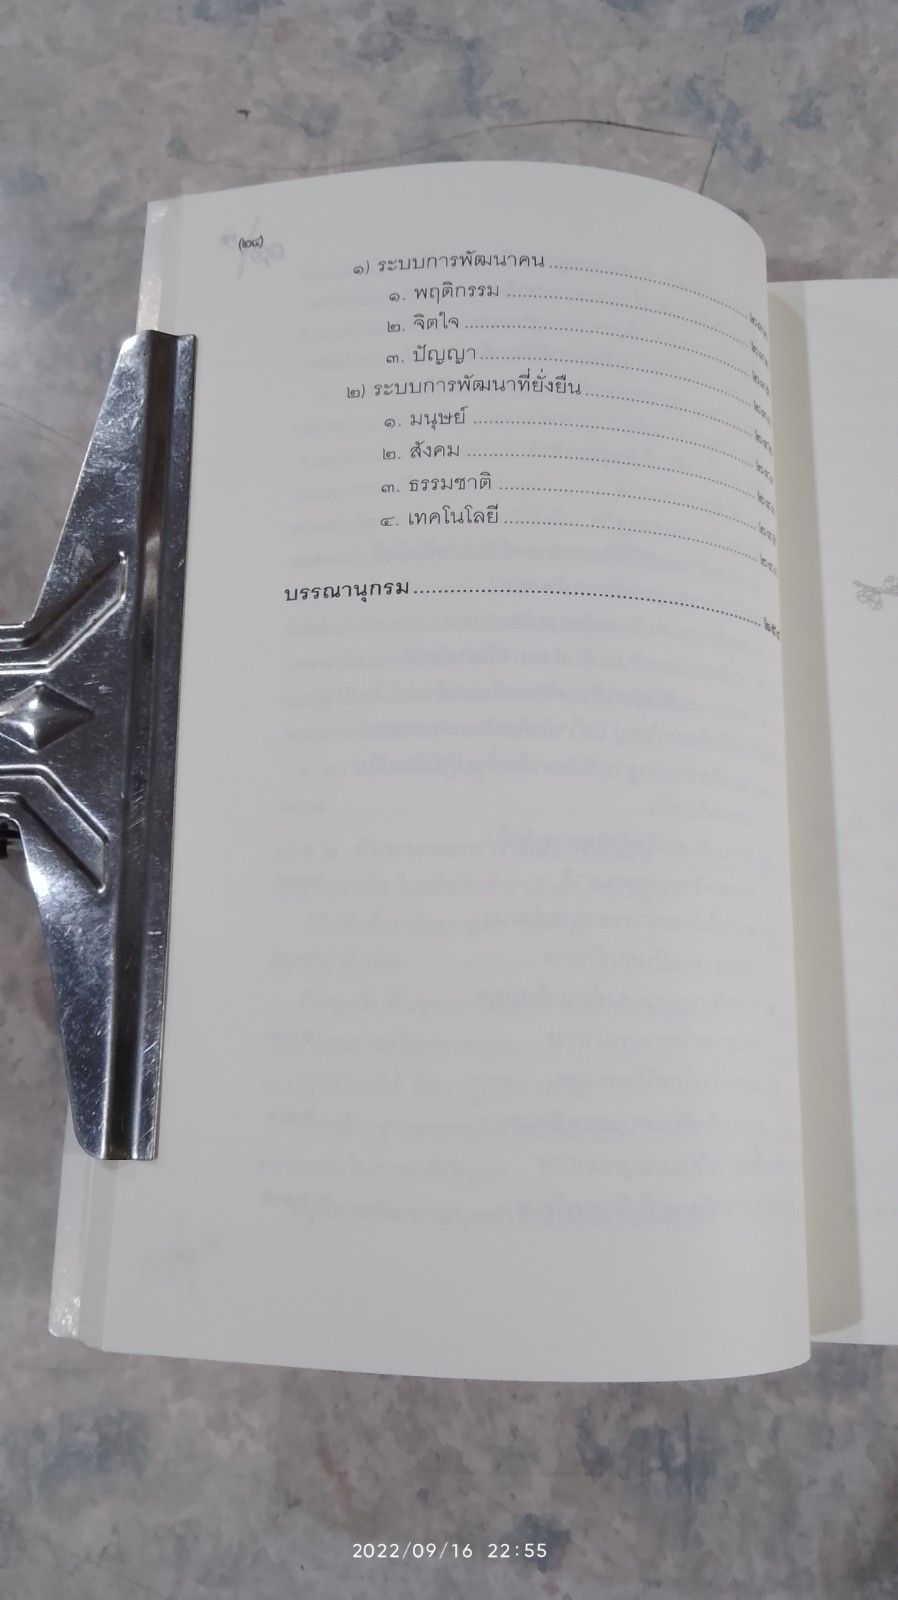 (๒๔)
๑) ระบบการพัฒนาคน
๑. พฤติกรรม
๒. จิตใจ
๓. ปัญญา
๒) ระบบการพัฒนาที่ยั่งยืน
๑. มนุษย์
๒. สังคม
๓. ธรรมชาติ
๔. เทคโนโลยี
บรรณานุกรม
2022/09/16 22:55